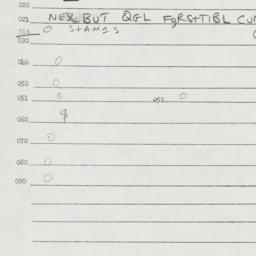 020
021 NEX BUT QGL FgRS+TIBL CUM
022 S+AMIS
030
040
050
051 050
060
070
080
090